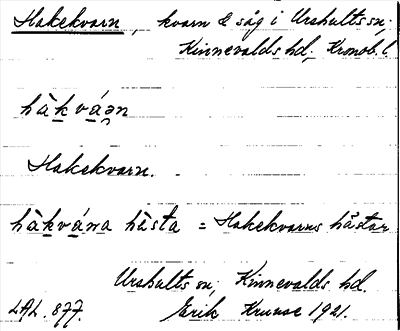 Hakekvarn, kvarn & såg i Urshults sn;
Kinnevalds hd; Kronob. l.
hàkváən
Hakekvarn.
hàkvána hàsta = Hakekvarns hästar
Urshults sn; Kinnevalds hd.
LAL. 877. Erik Kruuse 1921.